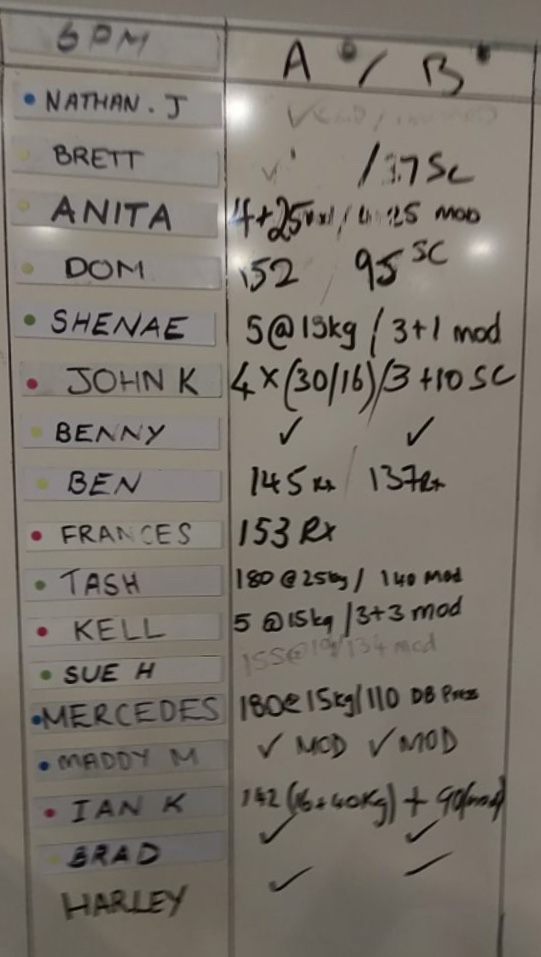 6PM A / B
NATHAN. J
BRETT ✓ / 137 SC
ANITA 4+25 / 4+25 MOD
DOM 152 / 95 SC
SHENAE 5@15kg / 3+1 mod
JOHN K 4x(30/16)/3+10 SC
BENNY ✓ ✓
BEN 145 Rx / 137Rx
FRANCES 153 Rx
TASH 180 @ 25kg / 140 mod
KELL 5 @15kg / 3+3 mod
SUE H 155@ /134 mod
MERCEDES 180@15kg/110 DB Press
MADDY M ✓ MOD ✓ MOD
IAN K 142 (16+40kg) + 90(mod)
BRAD ✓ ✓
HARLEY ✓ ✓